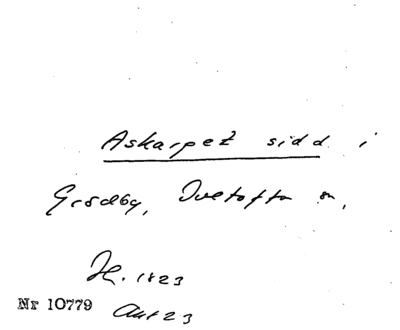 Askarpet sidd i
Grödby, Ivetofta sn,
H. 1823
Nr 10779
Aut 23